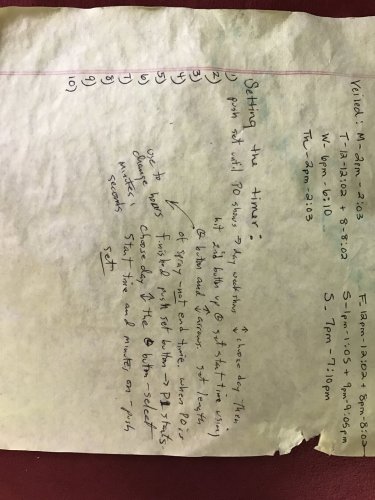 Veiled: M - 2pm - 2:03
T - 12-12:02 + 8-8:02
W - 6pm - 6:10
Th - 2pm - 2:03
F - 12pm - 12:02 + 8pm - 8:02
S - 1pm - 1:05 + 9pm - 9:05pm
S - 7pm - 7:10pm
Setting the timer:
1) push set until P0 shows → day week shows ↑ choose day then
2) hit 2nd button up ⊕ set start time using
3) ⊕ button and ↑ arrows. set length
4) of spray - not end time. When P0 is
5) finished push set button → P1 starts.
6) choose day ↑ the ⊕ button - select
7) start time and minutes on - push
8) set
9)
10)
use to
change hours
minutes,
seconds